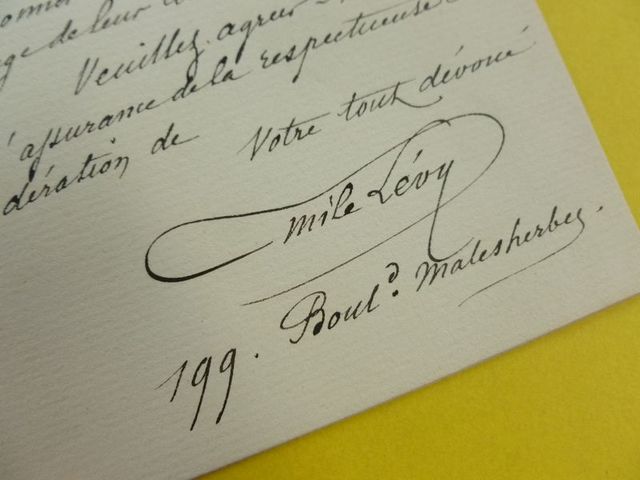 ge de leur
Veuillez agréer
l'assurance de la respectueuse
dération de Votre tout dévoué
Emile Lévy
199. Boul.d Malesherbes.